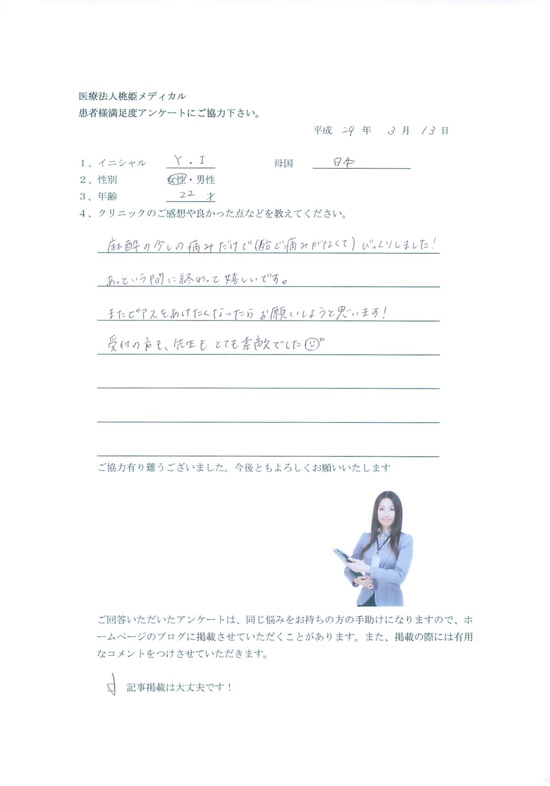 医療法人桃姫メディカル
患者様満足度アンケートにご協力下さい。
平成 29 年 3 月 13 日
1、イニシャル Y.I 母国 日本
2、性別 女性・男性
3、年齢 22 才
4、クリニックのご感想や良かった点などを教えてください。
麻酔の少しの痛みだけで(殆ど痛みがなくて)びっくりしました!
あっという間に終わって嬉しいです。
またピアスをあけたくなったらお願いしようと思います!
受付の方も、先生もとても素敵でした
ご協力有り難うございました。今後ともよろしくお願いいたします
ご回答いただいたアンケートは、同じ悩みをお持ちの方の手助けになりますので、ホ
ームページのブログに掲載させていただくことがあります。また、掲載の際には有用
なコメントをつけさせていただきます。
記事掲載は大丈夫です!